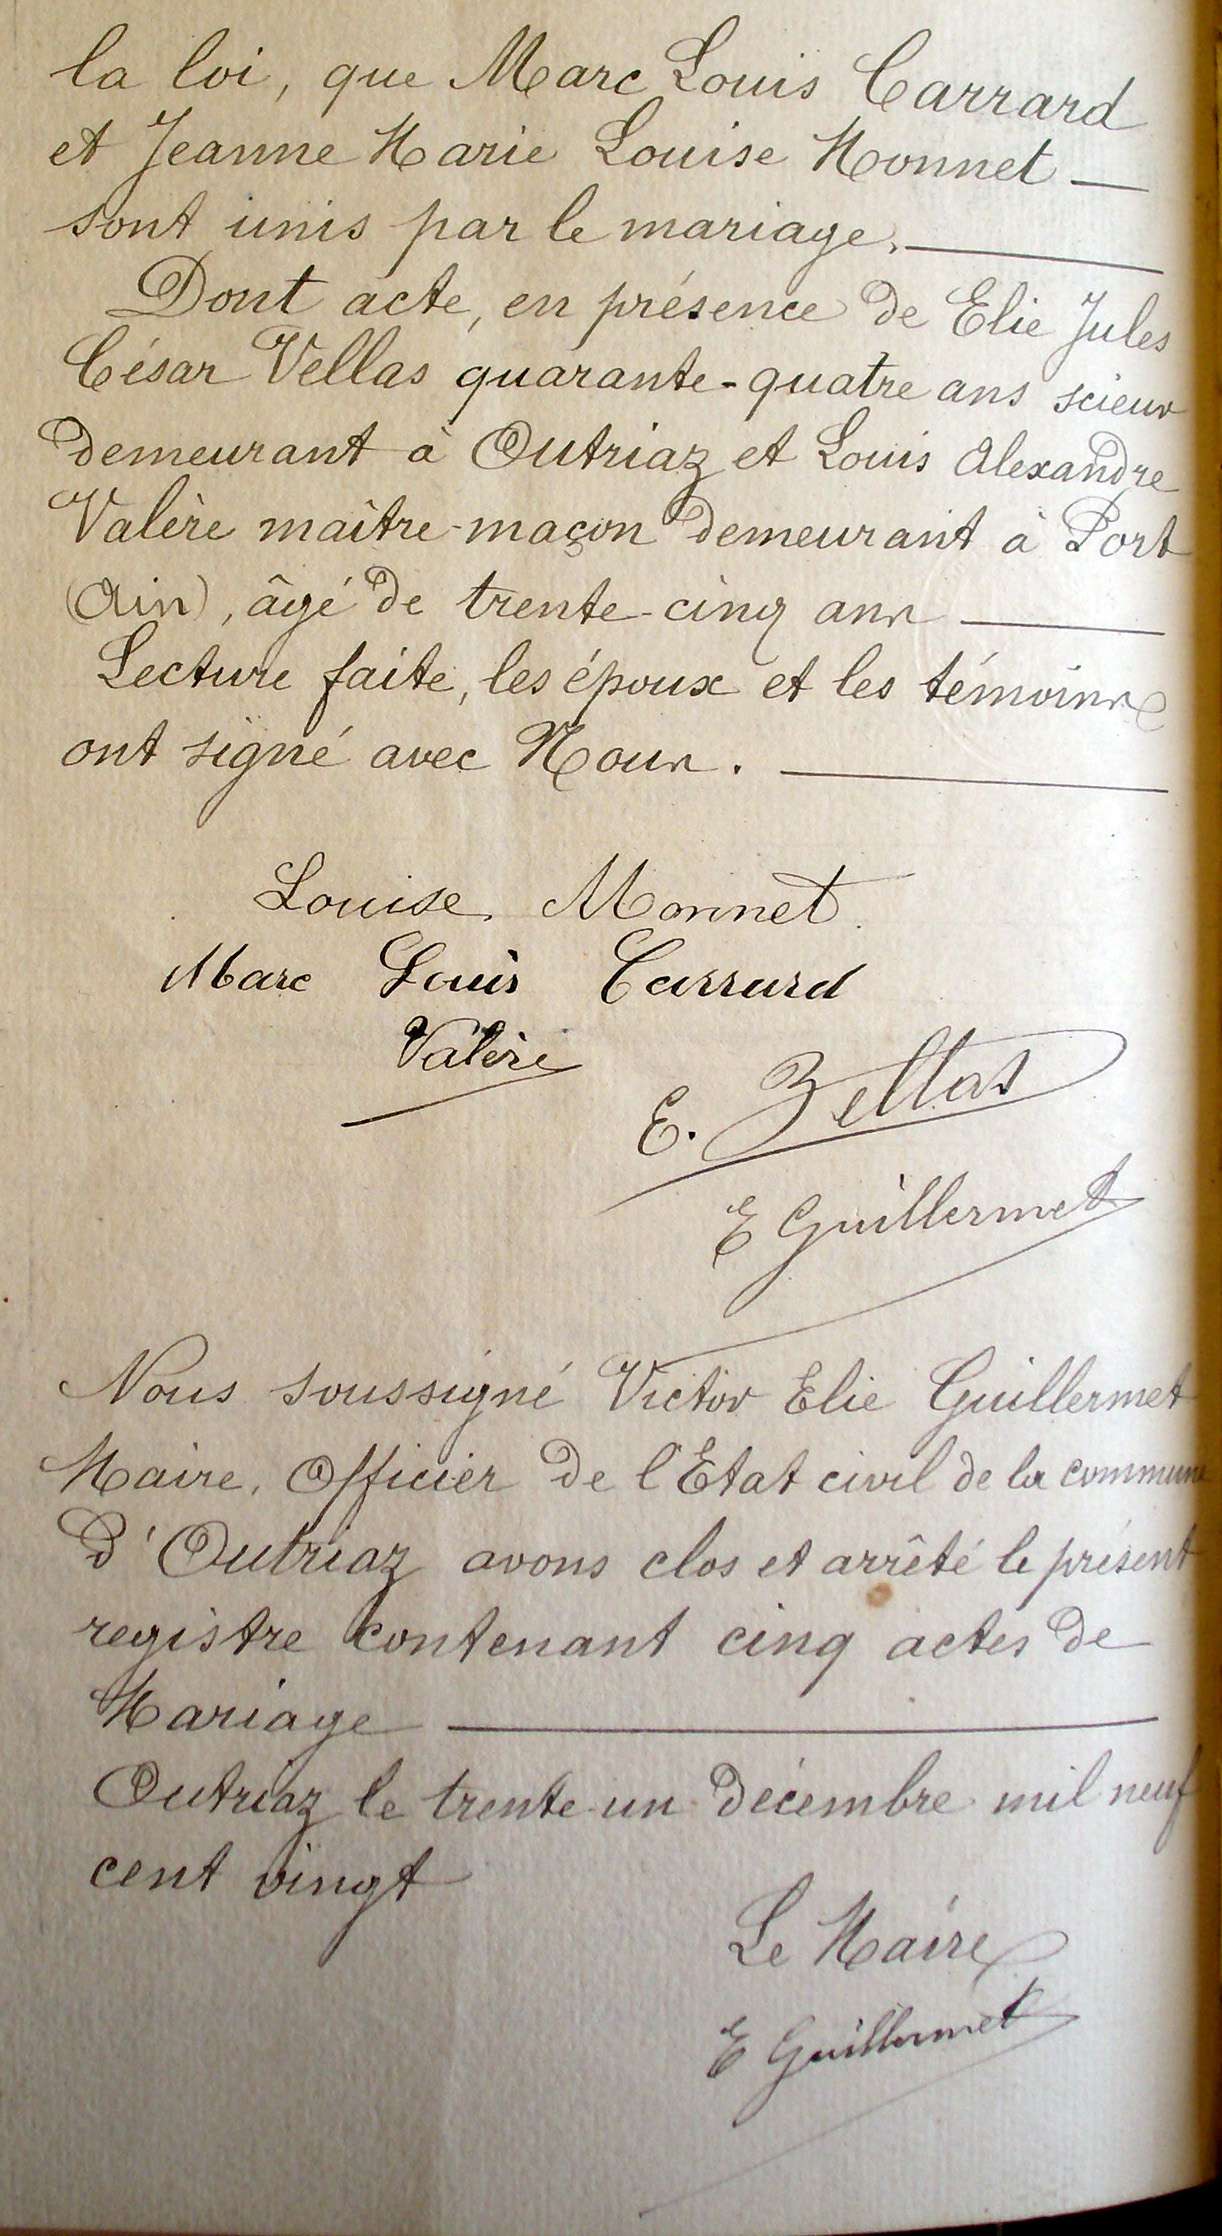 la loi, que Marc Louis Carrard
et Jeanne Marie Louise Monnet —
sont unis par le mariage. —
Dont acte, en présence de Elie Jules
César Vellas quarante-quatre ans scieur
demeurant à Outriaz et Louis Alexandre
Valère maître-maçon demeurant à Port
(Ain), âgé de trente-cinq ans —
Lecture faite, les époux et les témoins
ont signé avec Nous. —
Louise Monnet
Marc Louis Carrard
Valère
E. Vellas
E Guillermet
Nous soussigné Victor Elie Guillermet
Maire, Officier de l'Etat civil de la commune
d'Outriaz avons clos et arrêté le présent
registre contenant cinq actes de
Mariage —
Outriaz le trente-un décembre mil neuf
cent vingt
Le Maire
E Guillermet